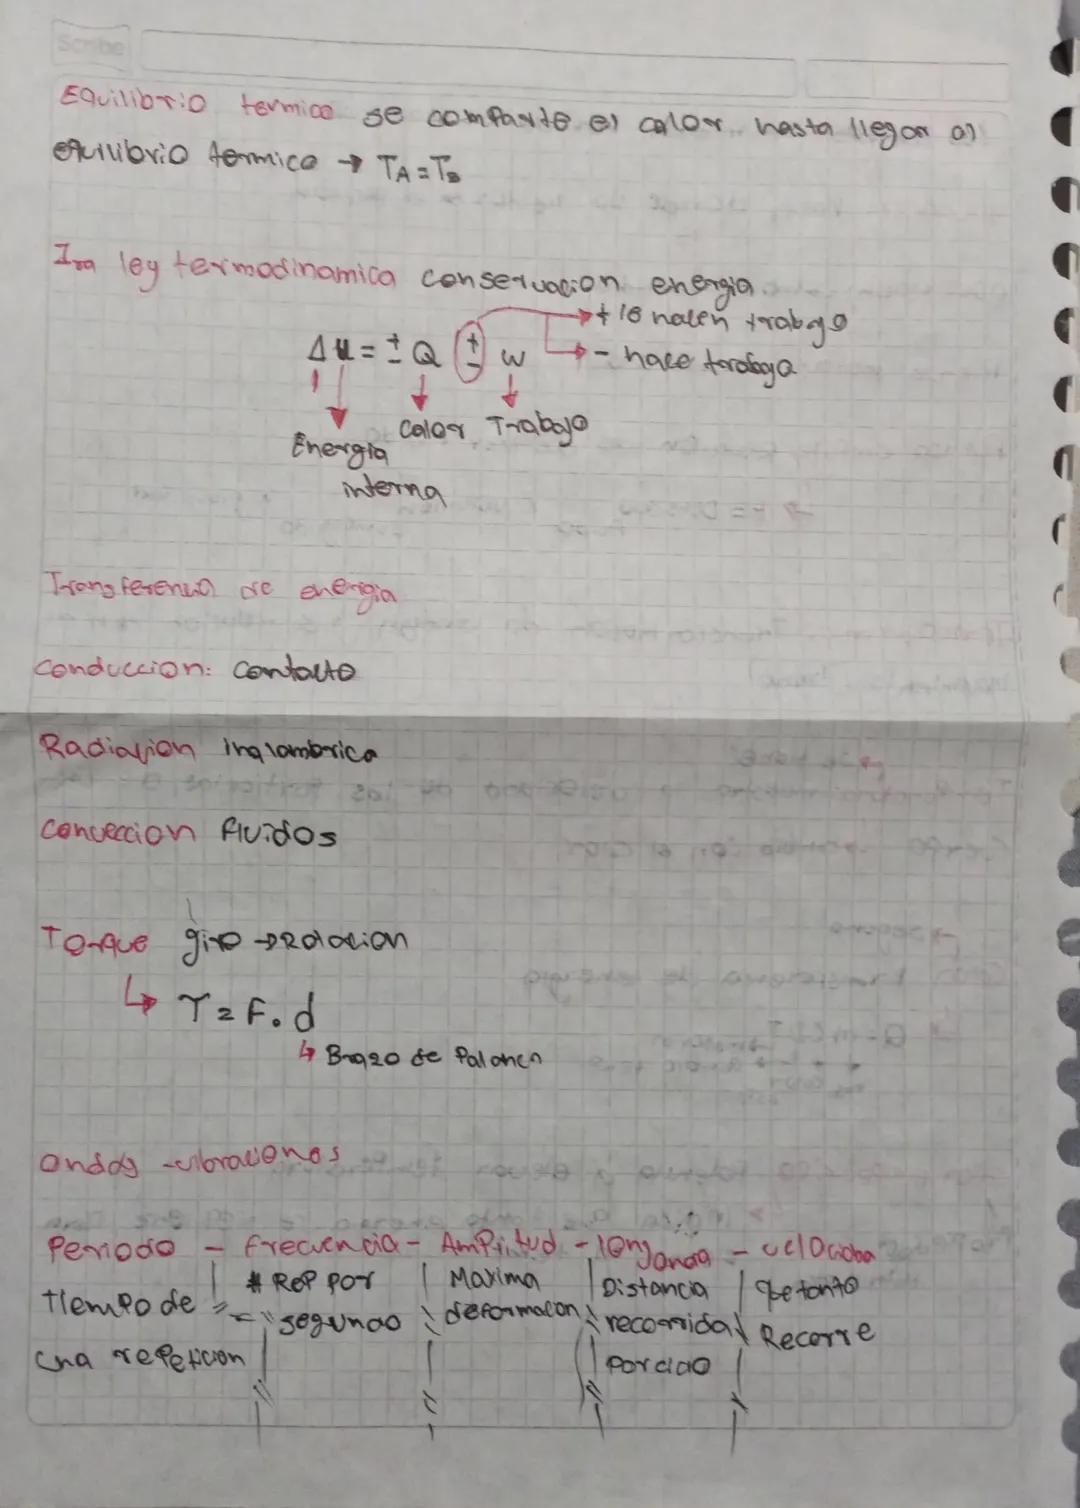 Scribe
Equilibrio termico se comparte el calor hasta llegar al
equilibrio termico → TA = TB
1ra ley termodinamica conservacion energia
+ le hacen trabajo
ΔU = ± Q ± w - hace trabajo
Calor Trabajo
Energia
interna
Transferencia de energia
Conduccion: Contacto
Radiacion inalambrica
Conveccion fluidos
Torque giro → Rotacion
↳ T = F . d
↳ Brazo de Palanca
Ondas - vibraciones
Periodo - frecuencia - Amplitud - long onda - velocidad
# Rep por Maxima Distancia Que tanto
tiempo de segundo deformacion recorrida Recorre
una repeticion por ciclo